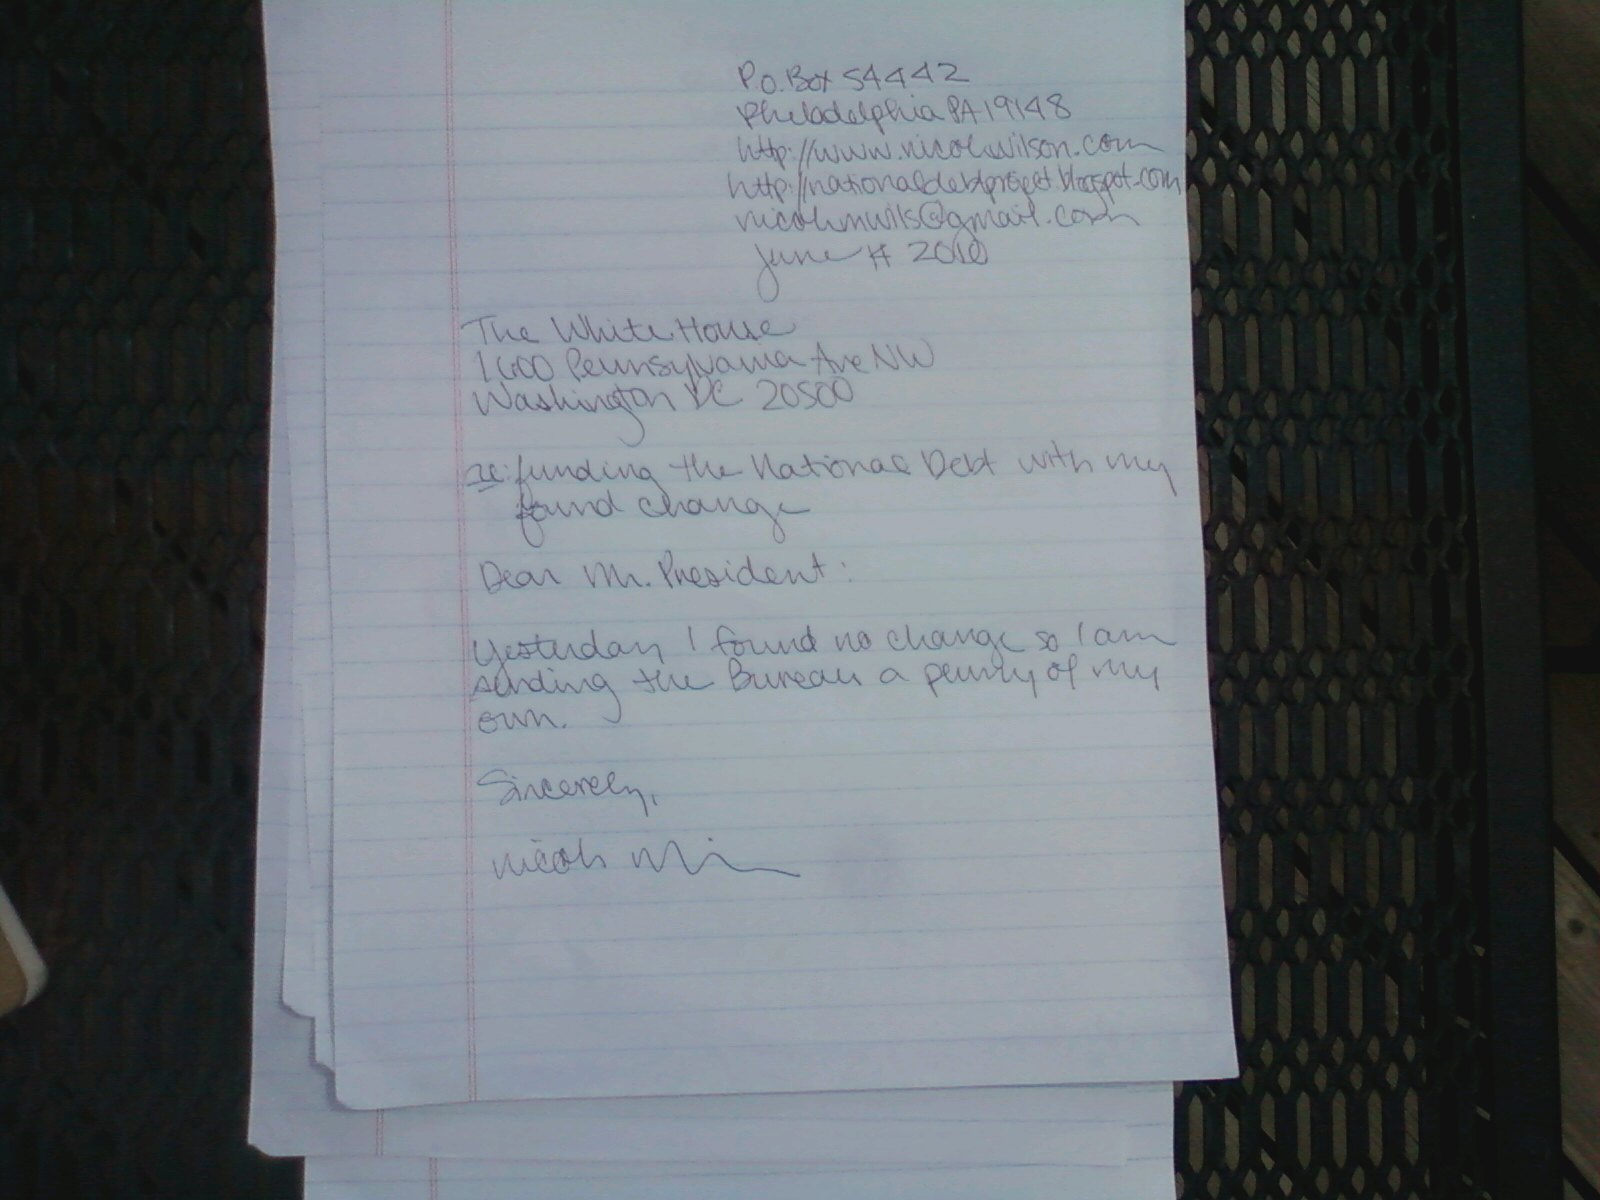 P.O. Box 54442
Philadelphia PA 19148
http://www.nicolwilson.com
http://nationaldebtproject.blogspot.com
@gmail.com
June 2010
The White House
1600 Pennsylvania Ave NW
Washington DC 20500
re: funding the National Debt with my
found change
Dear Mr. President:
Yesterday I found no change so I am
sending the Bureau a penny of my
own.
Sincerely,